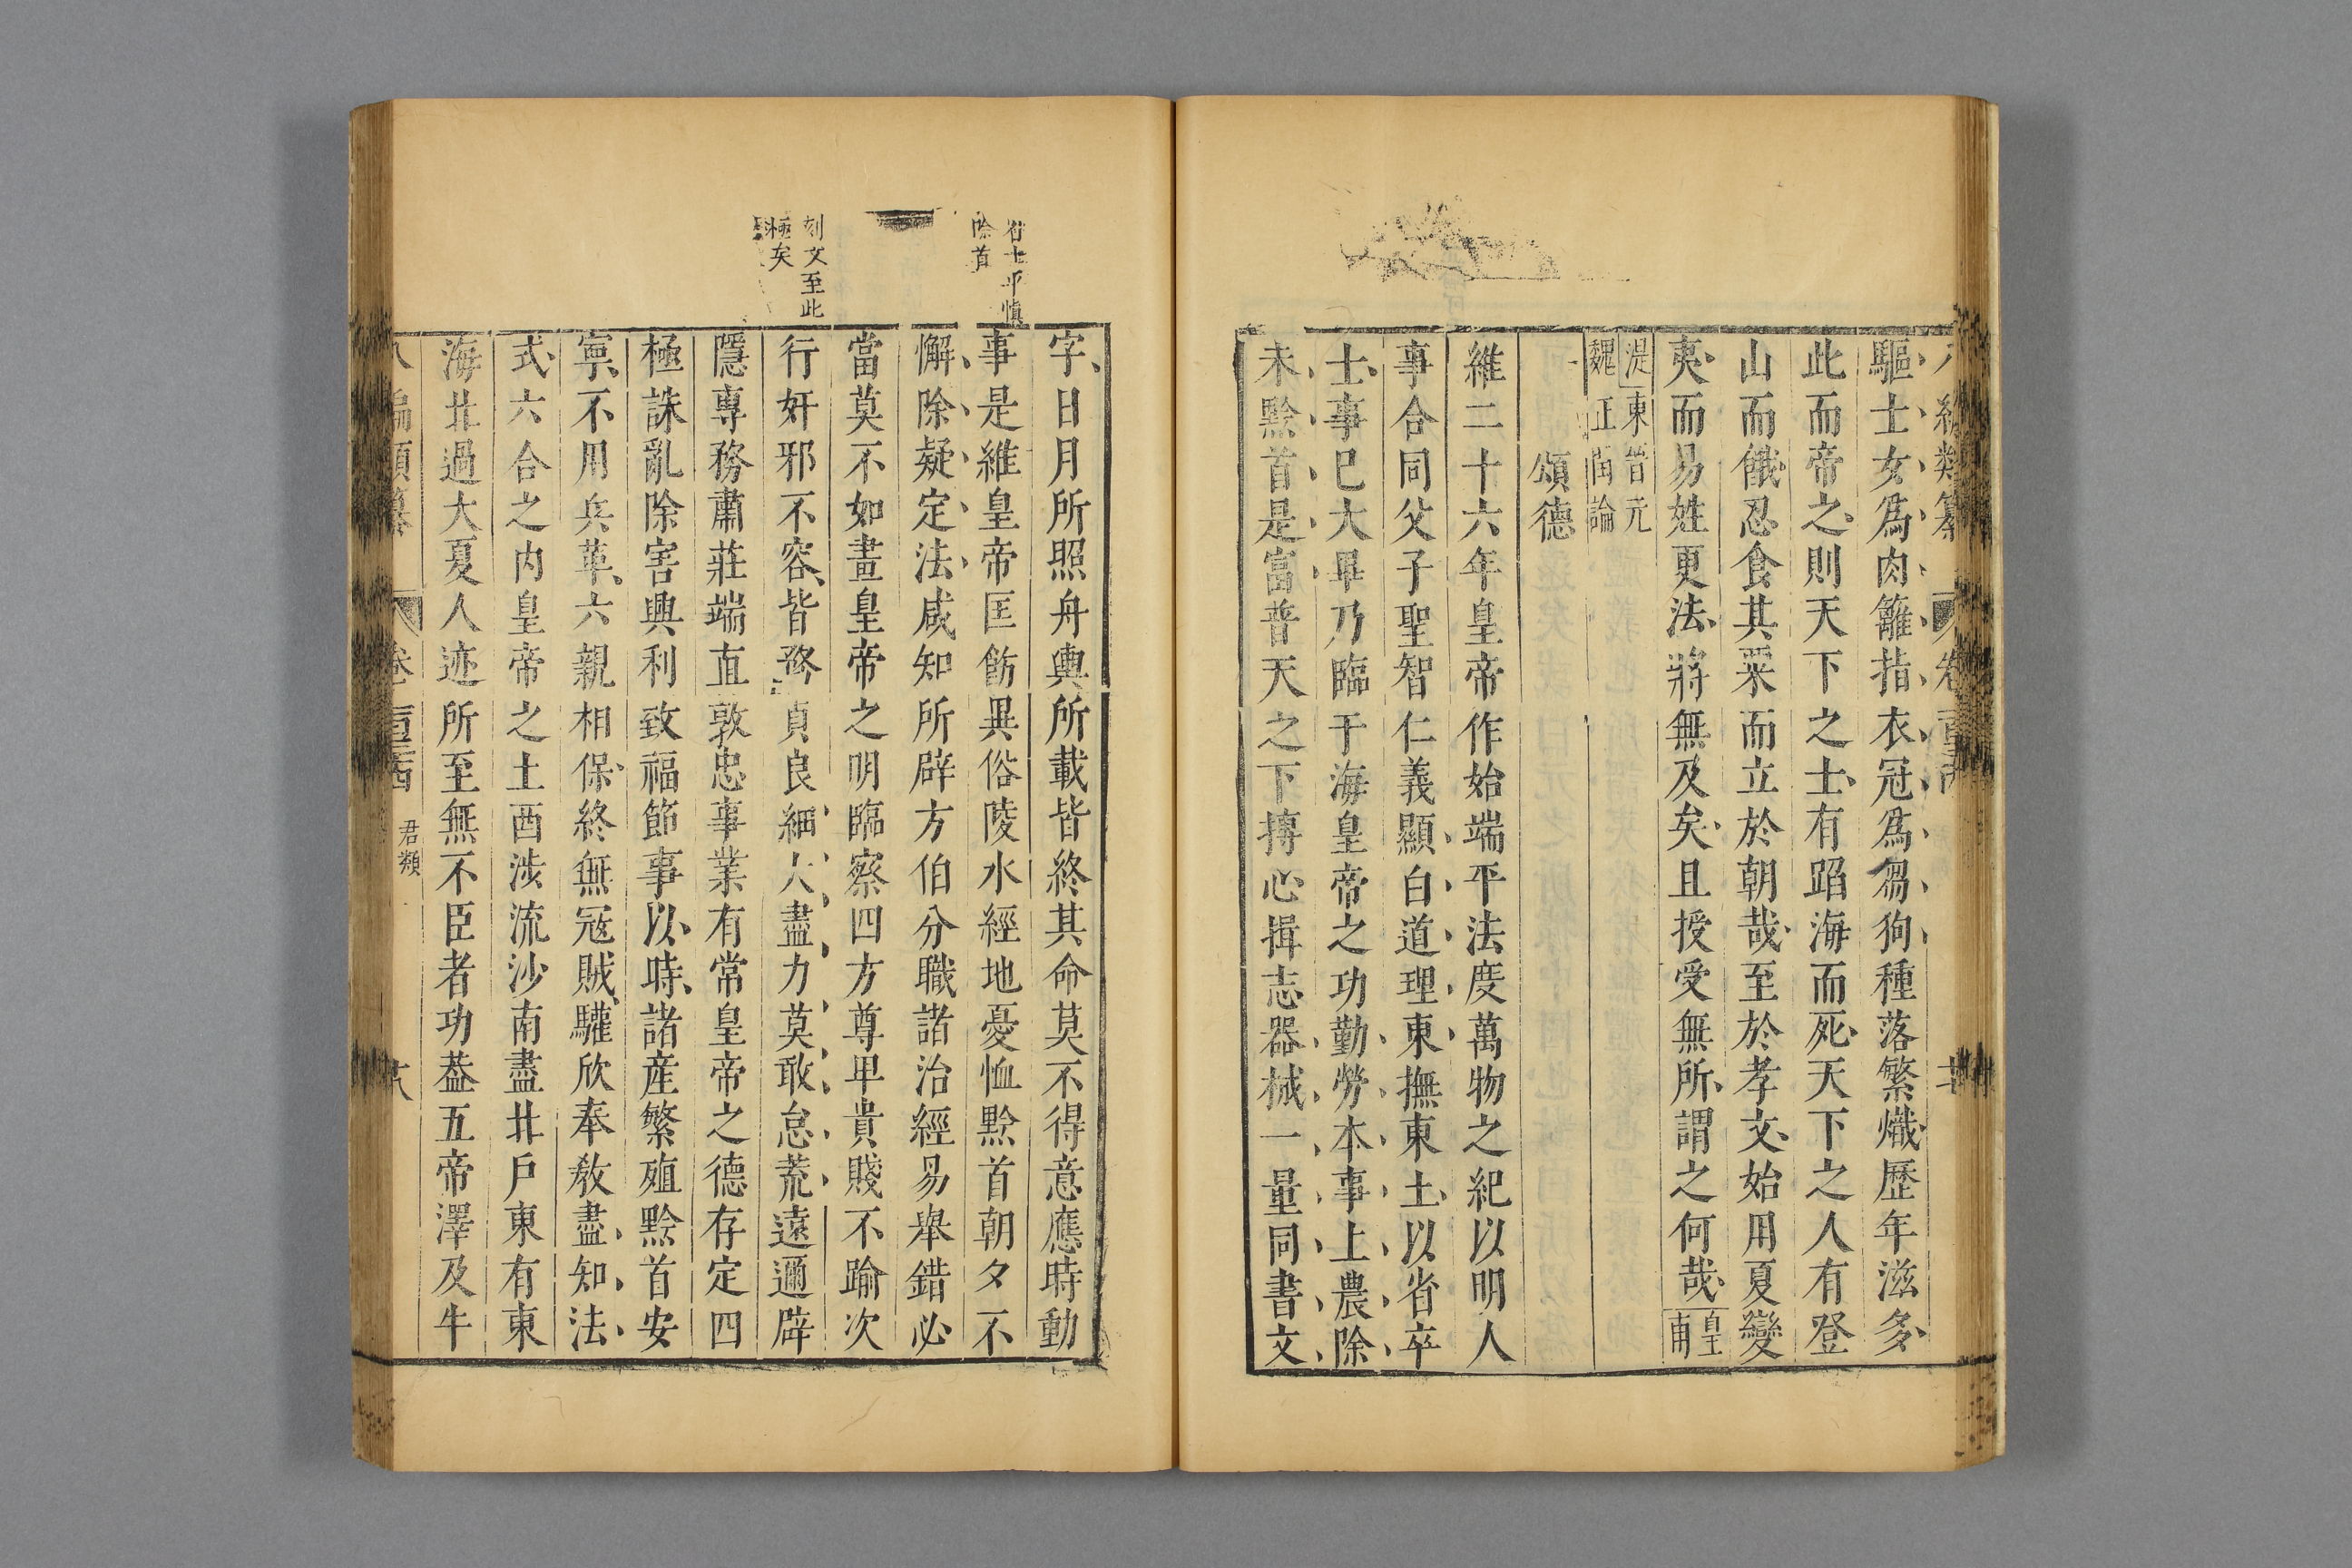 驅士女爲肉籬指衣冠爲芻狗種落繁熾歷年滋多
此而帝之則天下之士有蹈海而死天下之人有登
山而餓忍食其粟而立於朝哉至於孝文始用夏變
夷而易姓更法將無及矣且授受無所謂之何哉皇甫
湜東晉元魏正閏論
頌德
維二十六年皇帝作始端平法度萬物之紀以明人
事合同父子聖智仁義顯白道理東撫東土以省卒
士事已大畢乃臨于海皇帝之功勤勞本事上農除
末黔首是富普天之下摶心揖志器械一量同書文
字日月所照舟輿所載皆終其命莫不得意應時動
事是維皇帝匡飭異俗陵水經地憂恤黔首朝夕不
懈除疑定法咸知所辟方伯分職諸治經易舉錯必
當莫不如畫皇帝之明臨察四方尊卑貴賤不踰次
行奸邪不容皆務貞良細大盡力莫敢怠荒遠邇辟
隱專務肅莊端直敦忠事業有常皇帝之德存定四
極誅亂除害興利致福節事以時諸産繁殖黔首安
寧不用兵革六親相保終無寇賊驩欣奉教盡知法
式六合之内皇帝之土酉涉流沙南盡北戶東有東
海北過大夏人迹所至無不臣者功葢五帝澤及牛
刻文至此
極矣
君類